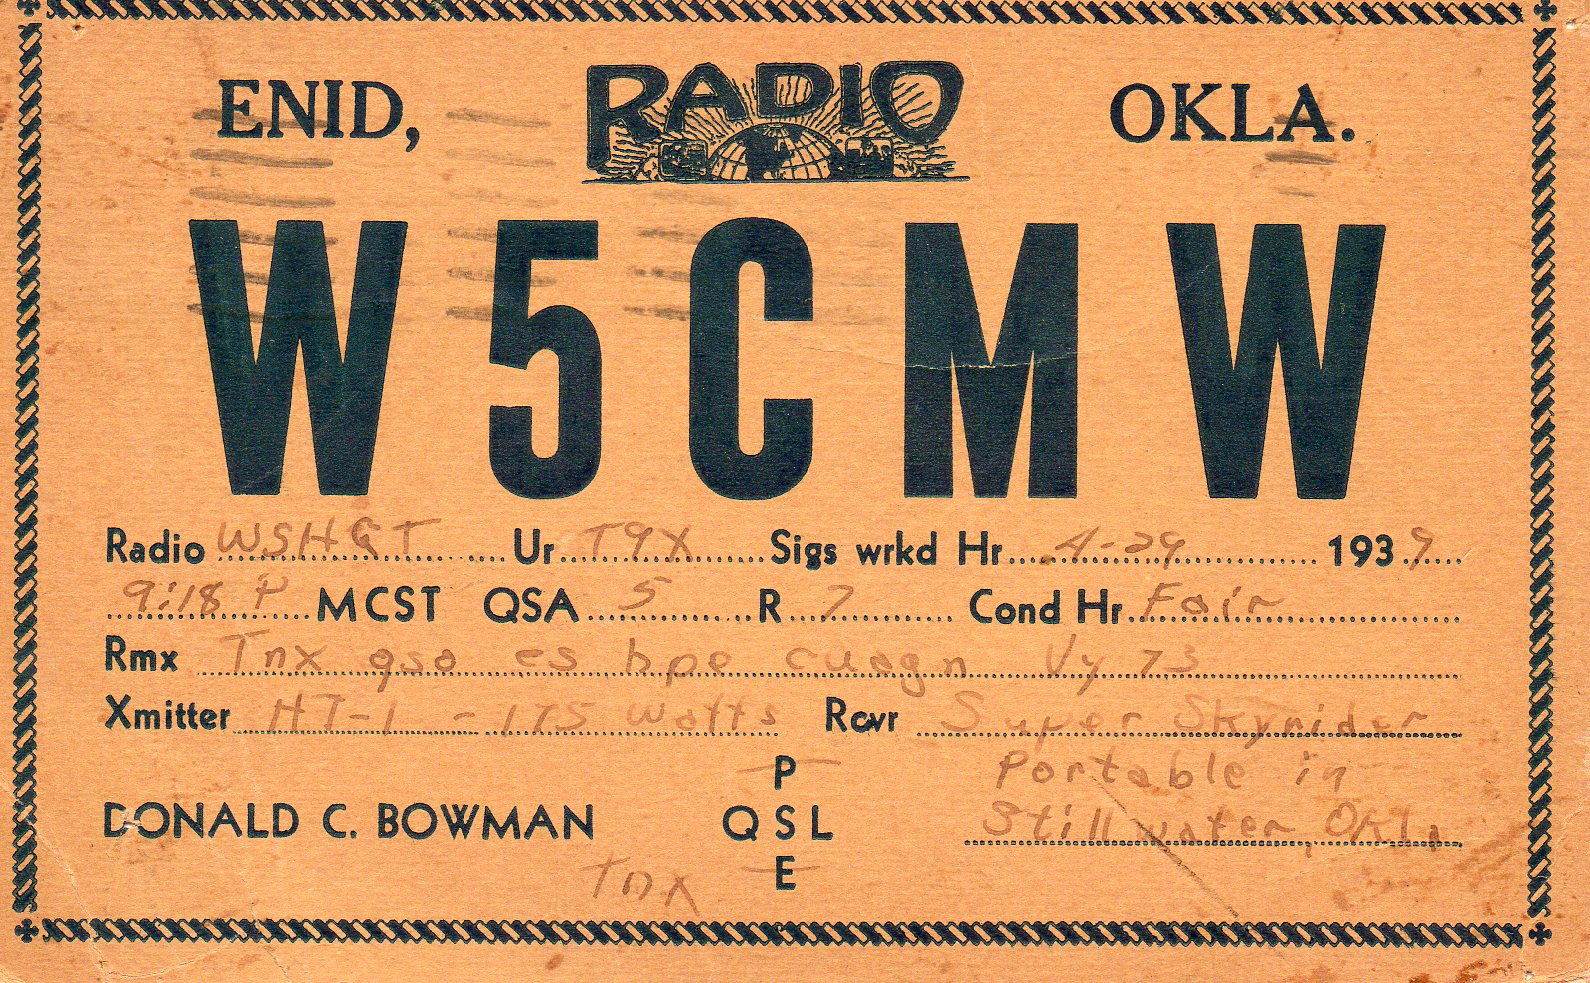 ENID, RADIO OKLA.
W5CMW
Radio W5HGT Ur T9X Sigs wrkd Hr 4-29 1939
9:18 P MCST QSA 5 R 7 Cond Hr Fair
Rmx Tnx qso es hpe cuagn Vy 73
Xmitter HT-1 - 175 watts Rcvr Super Skyrider
P Portable in
DONALD C. BOWMAN QSL Stillwater, Okla
Tnx E